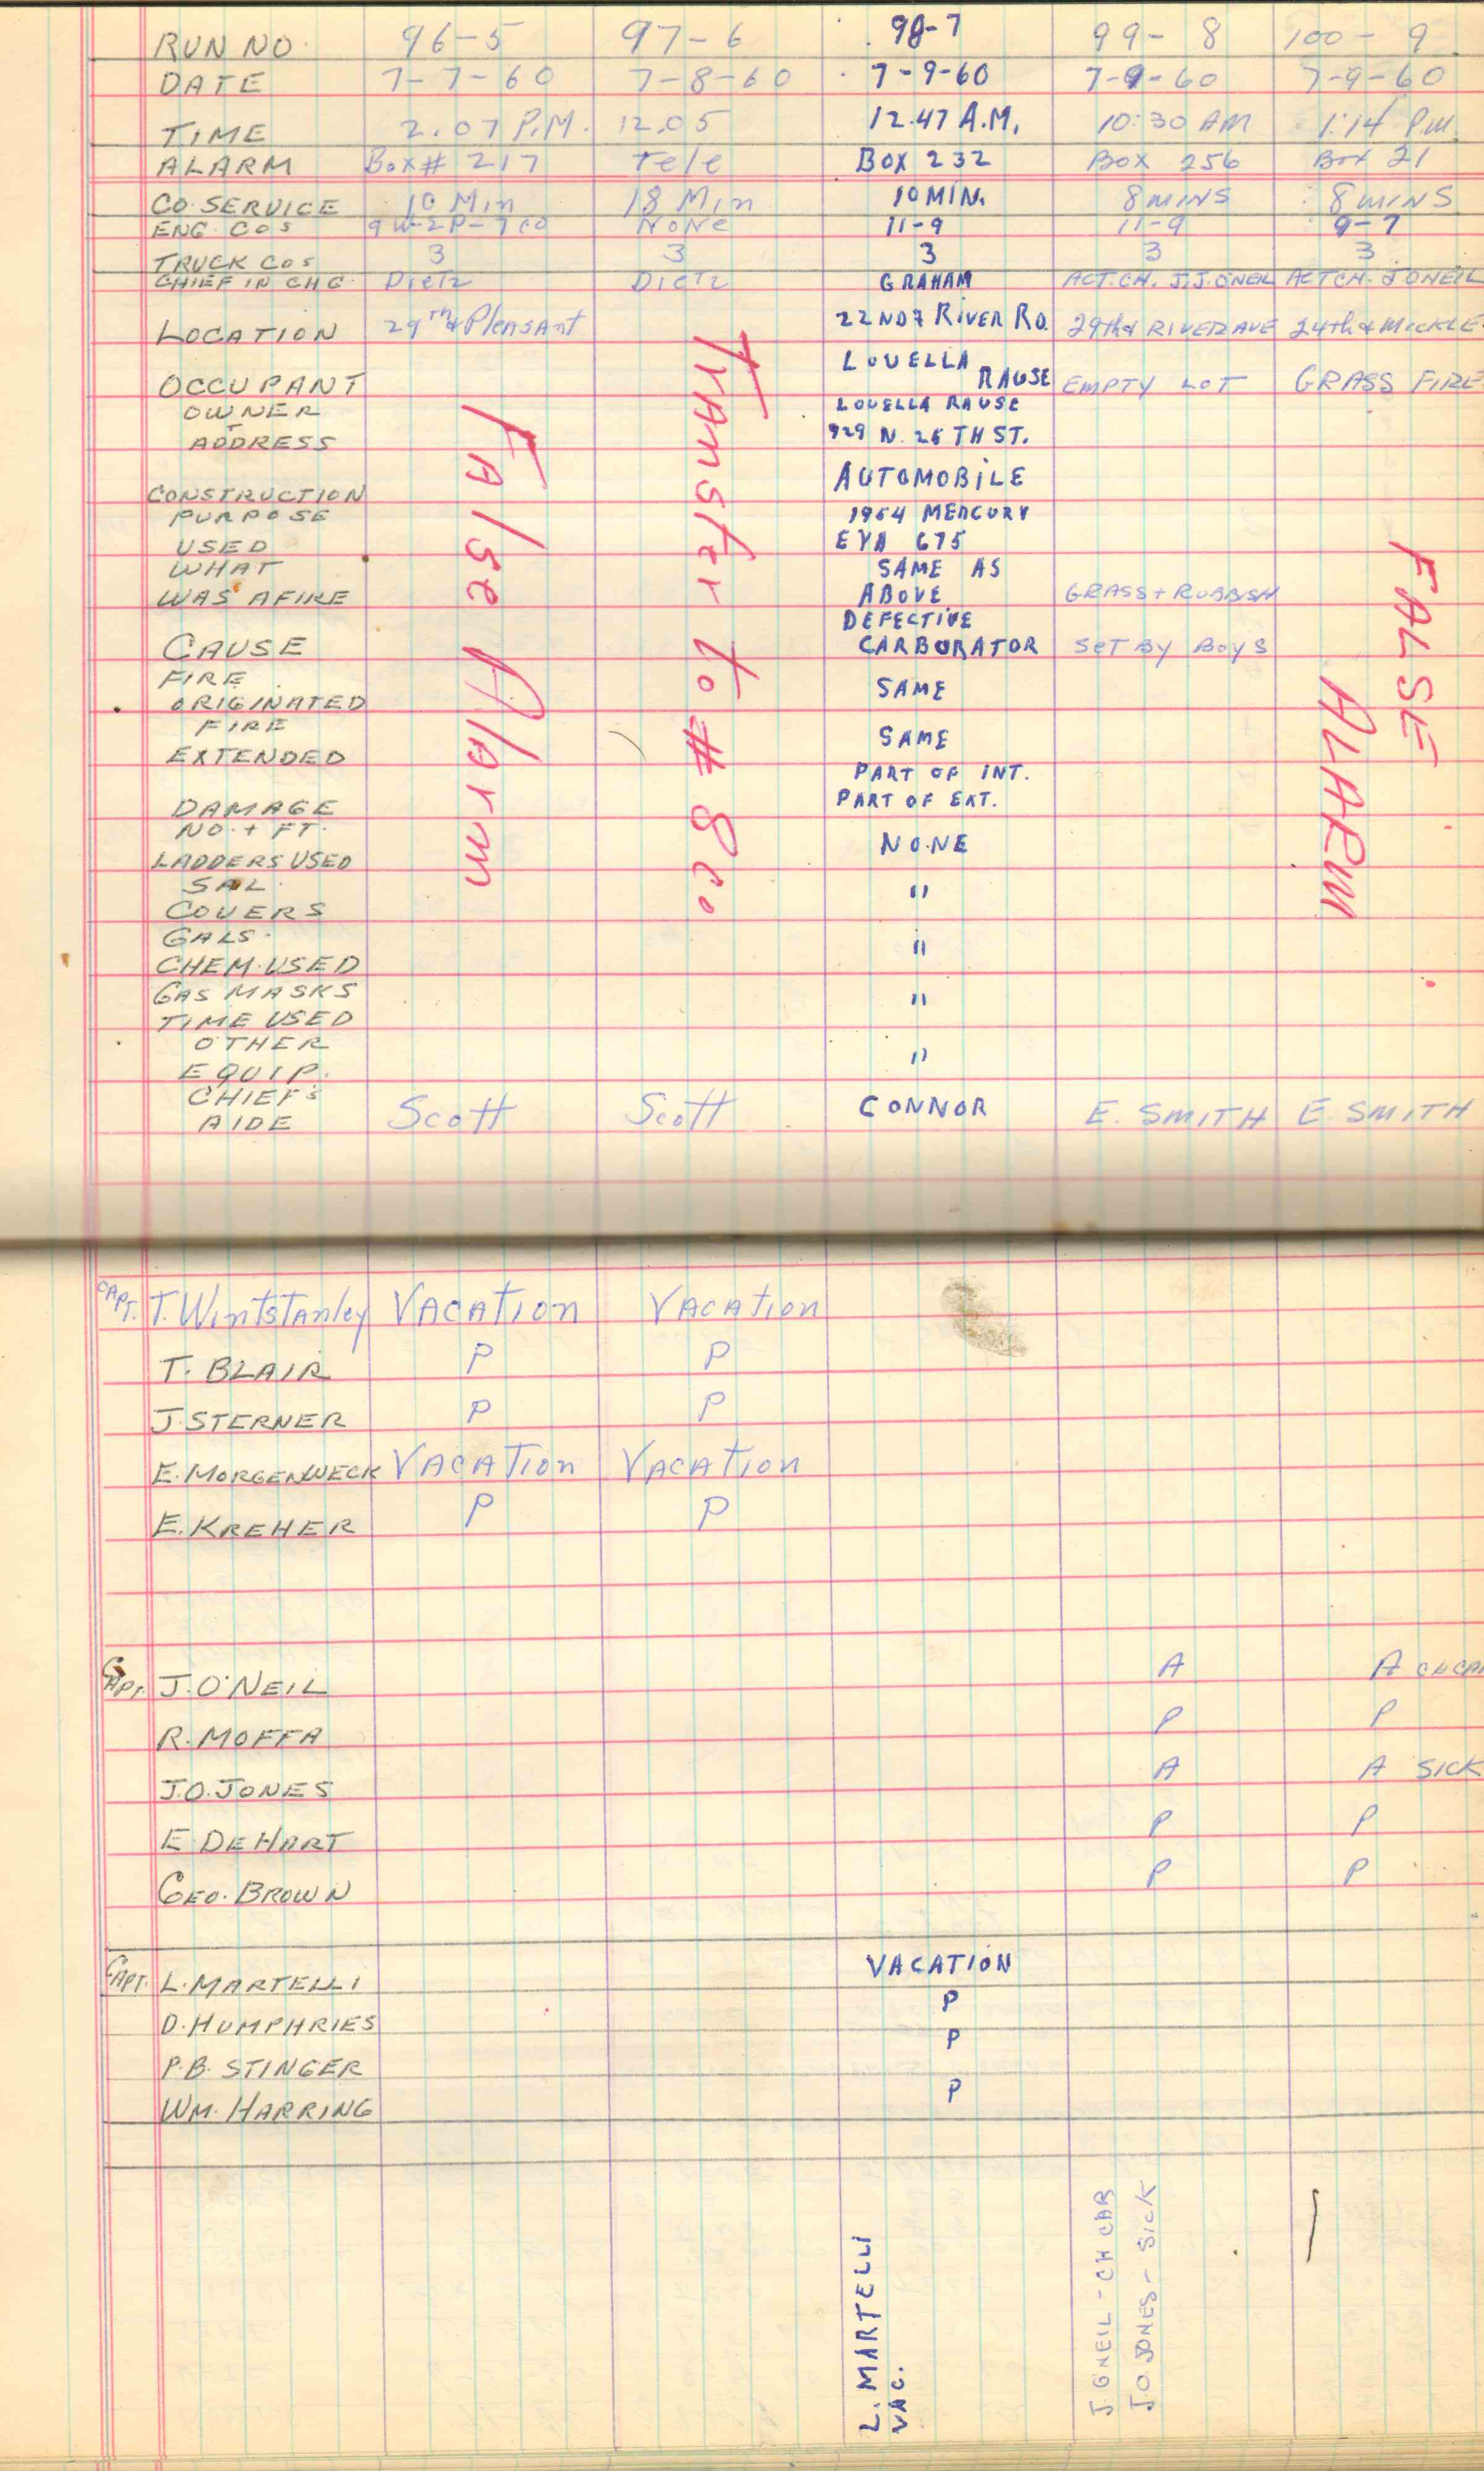 RUN NO. 96-5 97-6 98-7 99-8 100-9
DATE 7-7-60 7-8-60 7-9-60 7-9-60 7-9-60
TIME 2.07 P.M. 12.05 12.47 A.M. 10:30 AM 1:14 PM.
ALARM Box# 217 Tele BOX 232 BOX 256 BOX 21
CO. SERVICE 10 Min 18 Min 10 MIN. 8 MINS 8 MINS
ENG. COS NONe 11-9 11-9 9-7
TRUCK COS 3 3 3 3 3
CHIEF IN CHG. DieTz DieTz GRAHAM ACT. CH. J.J. O'NEIL ACT CH. J ONEIL
LOCATION 29th & PleasAnt 22ND & RiVER RD. 29th & RIVER AVE 24th & MICKLE
OCCUPANT LOUELLA RAUSE EMPTY LOT GRASS FIRE
OWNER LOUELLA RAUSE
ADDRESS 929 N. 26 TH ST.
CONSTRUCTION AUTOMOBILE
PURPOSE 1954 MERCURY
USED EYA 675
WHAT SAME AS
WAS AFIRE ABOVE GRASS + RUBBISH
DEFECTIVE
CAUSE CARBURATOR SET By Boys
FIRE
ORIGINATED SAME
FIRE
EXTENDED SAME
PART OF INT.
DAMAGE PART OF EXT.
NO. + FT.
LADDERS USED NONE
SAL.
COVERS "
GALS.
CHEM. USED "
GAS MASKS
TIME USED "
OTHER
EQUIP. "
CHIEF'S
AIDE Scott Scott CONNOR E. SMITH E. SMITH
FAlse Alarm
TrAnsfer to # 8 co.
FALSE
ALARM
CAPT. T. WintsTanley VACATion VACATion
T. BLAIR P P
J STERNER P P
E. MORGENWECK VACATion VACATion
E. KREHER P P
CAPT. J. O'NEIL A A CH CAR
R. MOFFA P P
J.O. JONES A A SICK
E DEHART P P
GEO. BROWN P P
CAPT. L. MARTELLI VACATION
D. HUMPHRIES P
P.B. STINGER P
WM. HARRING P
L. MARTELLI
VAC.
J. O'NEIL - CH CAR
J.O. JONES - SICK